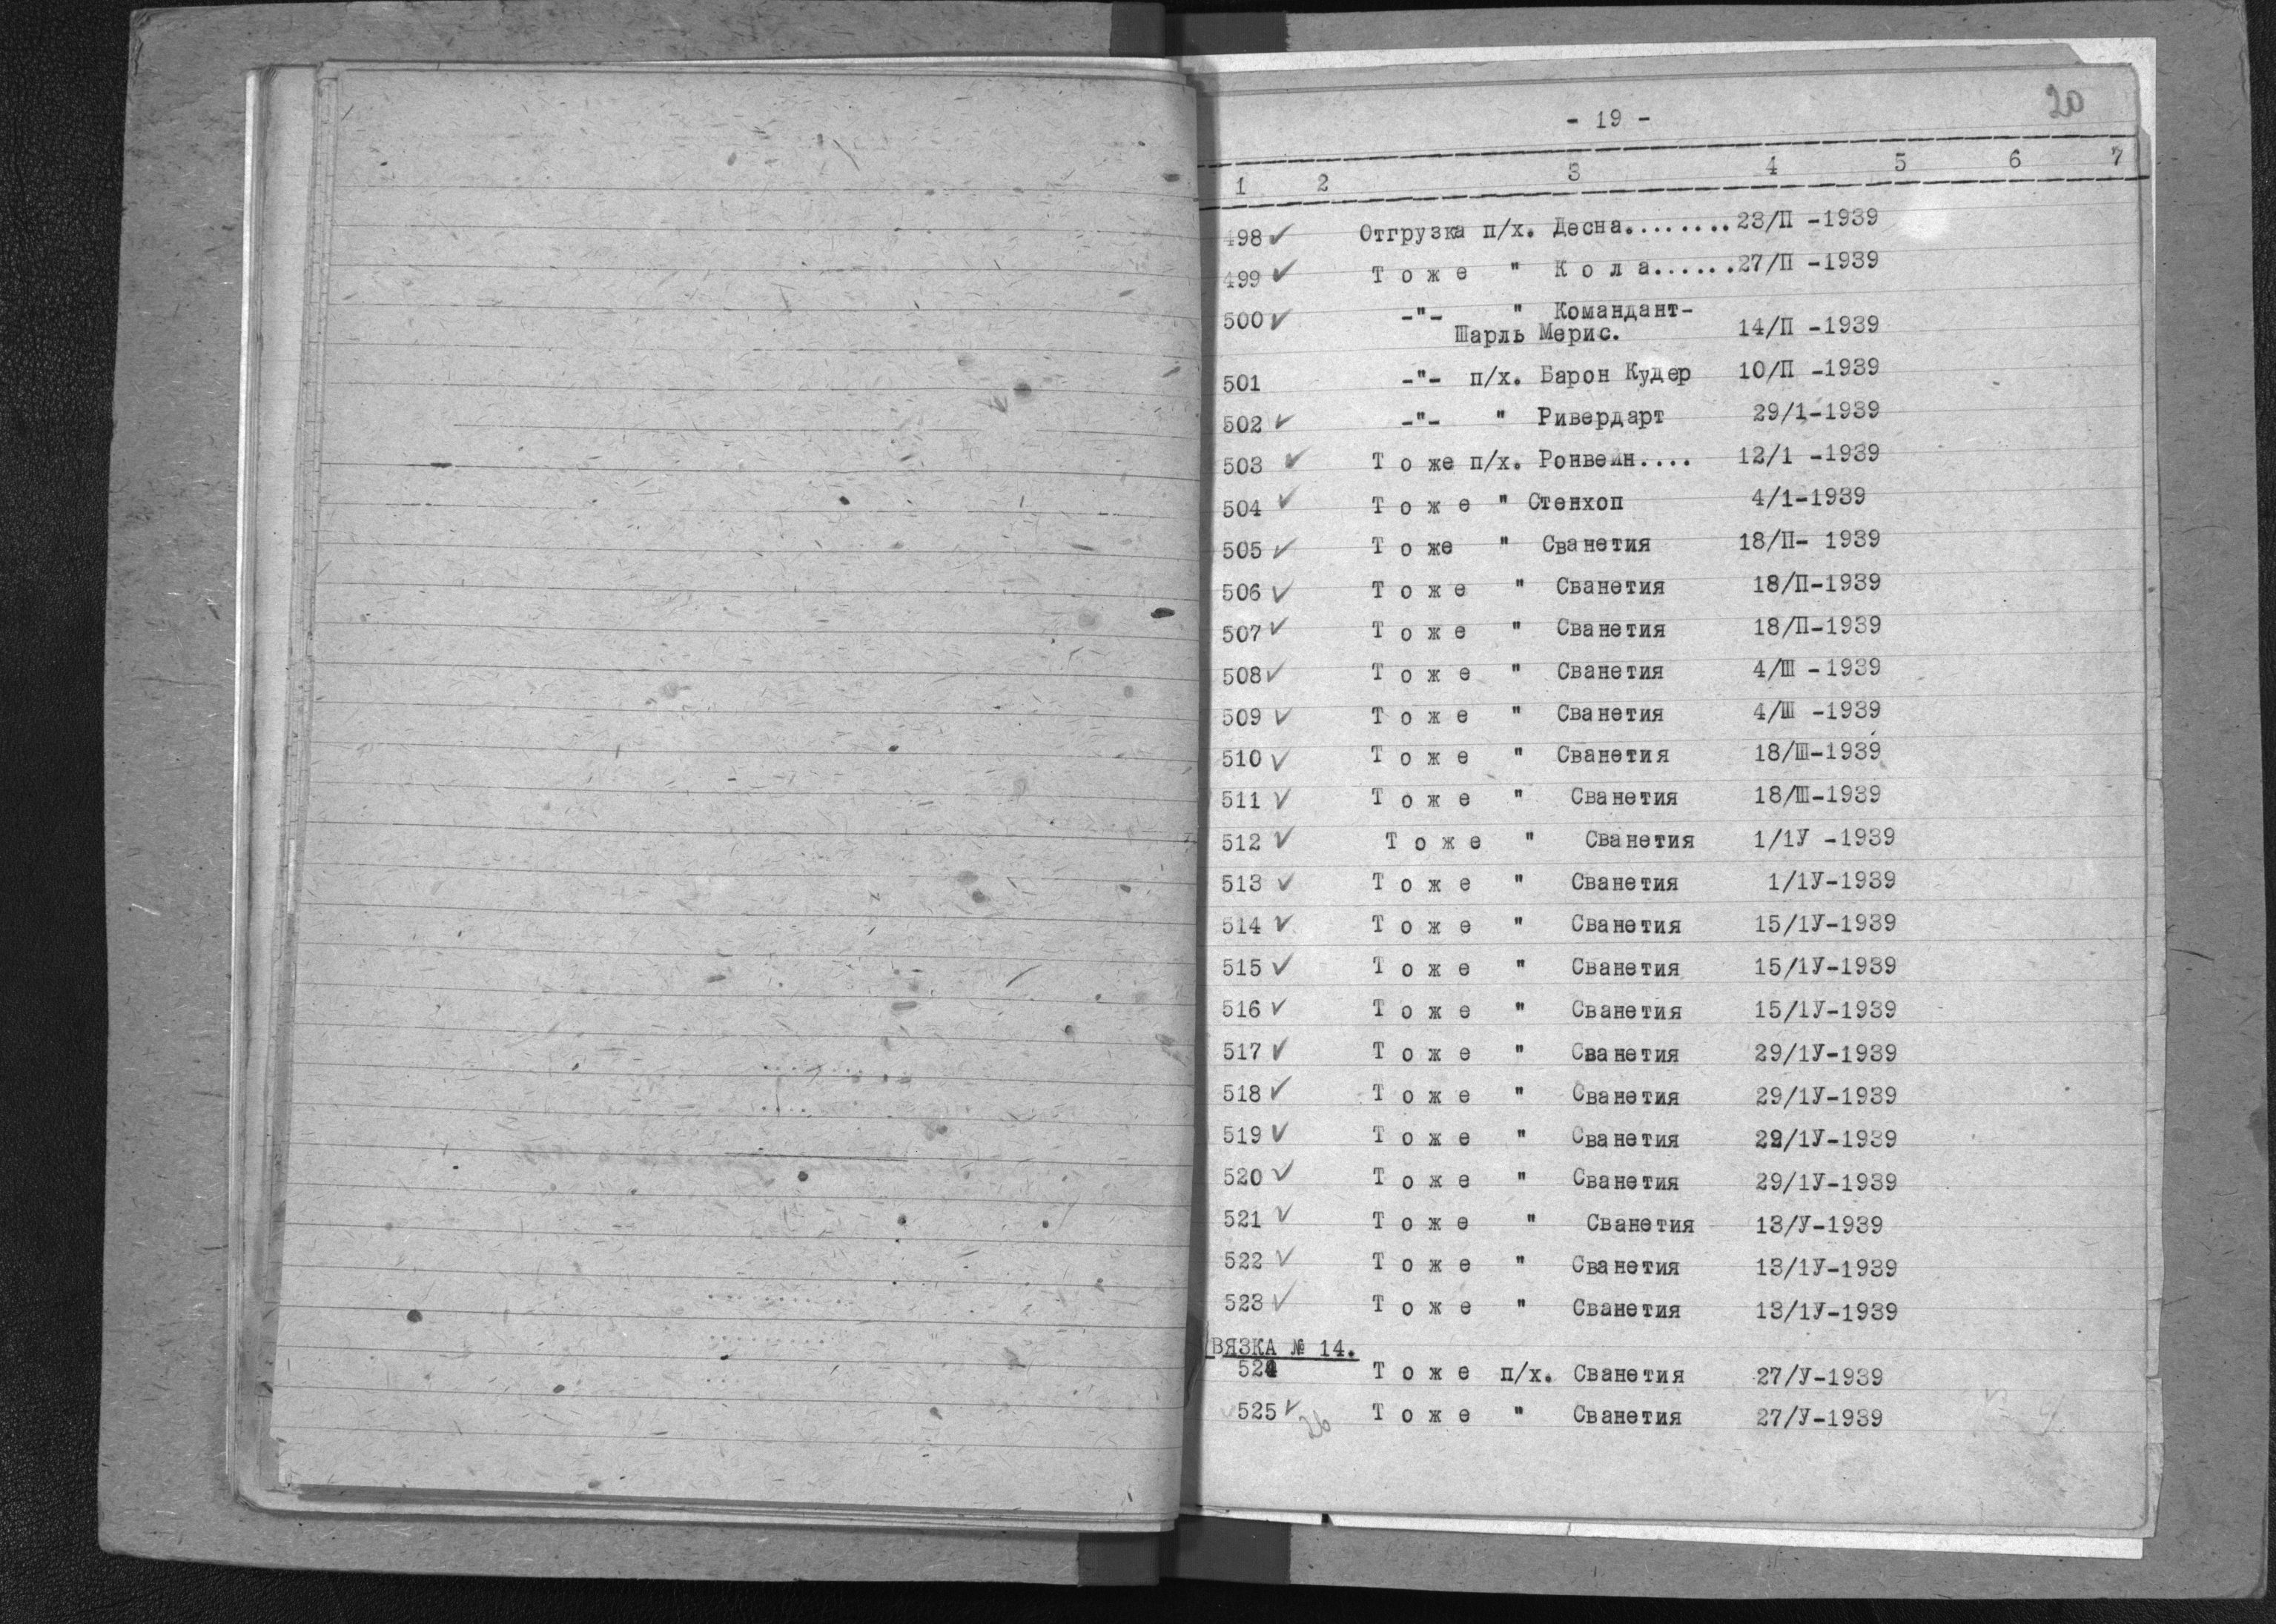 20
- 19 -
1 2 3 4 5 6 7
498 ✓ Отгрузка п/х. Десна........23/П -1939
499 ✓ Т о ж е " К о л а......27/П -1939
500 ✓ -"- " Командант-
Шарль Мерис. 14/П -1939
501 -"- п/х. Барон Кудер 10/П -1939
502 ✓ -"- " Ривердарт 29/1-1939
503 ✓ Т о же п/х. Ронвейн.... 12/1 -1939
504 ✓ Т о ж е " Стенхоп 4/1-1939
505 ✓ Т о же " Сванетия 18/П- 1939
506 ✓ Т о ж е " Сванетия 18/П-1939
507 ✓ Т о ж е " Сванетия 18/П-1939
508 ✓ Т о ж е " Сванетия 4/Ш -1939
509 ✓ Т о ж е " Сванетия 4/Ш -1939
510 ✓ Т о ж е " Сванетия 18/Ш-1939
511 ✓ Т о ж е " Сванетия 18/Ш-1939
512 ✓ Т о ж е " Сванетия 1/1У -1939
513 ✓ Т о ж е " Сванетия 1/1У-1939
514 ✓ Т о ж е " Сванетия 15/1У-1939
515 ✓ Т о ж е " Сванетия 15/1У-1939
516 ✓ Т о ж е " Сванетия 15/1У-1939
517 ✓ Т о ж е " Сванетия 29/1У-1939
518 ✓ Т о ж е " Сванетия 29/1У-1939
519 ✓ Т о ж е " Сванетия 29/1У-1939
520 ✓ Т о ж е " Сванетия 29/1У-1939
521 ✓ Т о ж е " Сванетия 13/У-1939
522 ✓ Т о ж е " Сванетия 13/1У-1939
523 ✓ Т о ж е " Сванетия 13/1У-1939
ВЯЗКА № 14.
524 Т о ж е п/х. Сванетия 27/У-1939
525 ✓ Т о ж е " Сванетия 27/У-1939
26